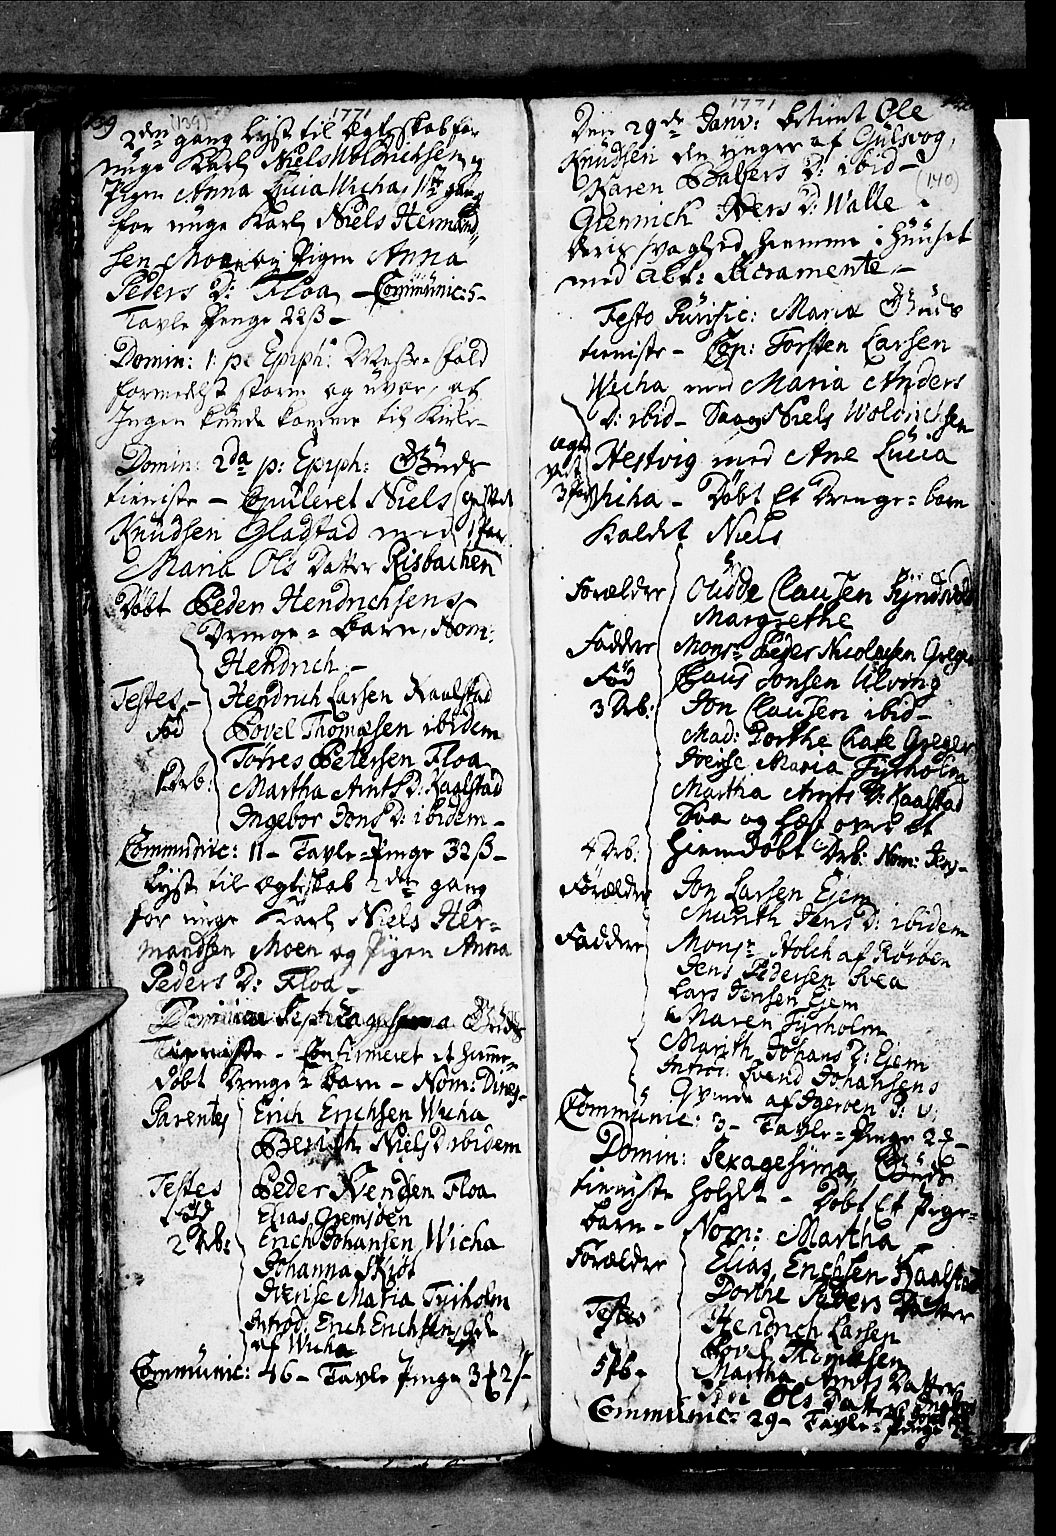 139
(139)
1771
2den gang lyst til Egteskab for
unge Karl Niels Woldrichsen og
Pigen Anna Lucia Wicha, 1ste gang
for unge Karl Niels Hermand-
sen Moen og Pigen Anna
Peders D: Floa - Communic: 5 -
Tavle Penge 22 ß -
Domin: 1: p: Epiph: Messe-fald
formedelst storm og uvær, at
Ingen kunde komme til Kirke -
Domin: 2da p: Epiph: Guds
tieniste - Copuleret Niels
Knudsen Gladstad med 1 Par
Maria Ols Datter Risbachen
Døbt Peder Hendrichsens
Drenge-barn, Nom:
Hendrich -
Testes - Hendrich Larsen Kaalstad
Fød Povel Thomæsen ibidem
Tørres Petersen Floa
1 Drb: Martha Arnts D: Kaalstad
Ingebor Jons D: ibidem -
Communic: 11 - Tavle-Penge 32 ß -
Lyst til Egteskab 2den gang
for unge Karl Niels Her-
mandsen Moen og Pigen Anna
Peders D: Floa -
Dominica Septuagesima Guds
Tieniste - Confirmeret et hiemme-
døbt Drenge-barn - Nom:
Parentes Erich Erichsen Wicha
Berith Niels D: ibidem
Testes Peder Svendsen Floa
Fød Elias Gremsøen
2 Drb: Erich Johansen Wicha
Johanna Skiøt
Iverise Maria Tyrholm
Introd: Erich Erichsens
af Wicha
Communic: 46 - Tavle Penge
1771
(140)
Den 29de Janv: betient Ole
Knudsen den yngre af Gulsvog,
Karen Balsers D: ibid -
Glennich Ivers D: Walle
deris svaghed hiemme i Huuset
med Alt: Sacramente -
Festo Purific: Mariæ Guds
tieniste - Cop: Torsten Larsen
Wicha med Maria Anders
D: ibid - Saa og Niels Woldrichsen
Hestvig med Ane Lucia
Wicha - Døbt Et Drenge-barn
Kaldet Niels
Forældre Oudde Clausen
Margrethe
Faddere Monsr: Peder Nicolaysen Greger
Fød Paus Jonsen Ulving
3 Drb: Jon Clausen ibid -
Mad: Dorthe Greger
Iverise Maria Tyrholm
Martha Arnts D: Kaalstad
Saa og læst over et
4 Drb: hiemdøbt Drb: Nom: Jens -
Forældre Jon Larsen Ejem
Marith Jens D: ibidem
Faddere Monsr: Holch af Rørøen
Jens Pedersen Svea
Lars Jensen Ejem
Maren Tyrholm
Marith Johans D: Ejem
Introd: Svend Johansens
Qvinde af Igerøen
Communic: 3 - Tavle-Penge
Domin: Sexagesima, Guds
tieniste holdt - Døbt Et Pige-
barn - Nom: Martha
Forældre Elias Erichsen Kaalstad
Dorthe Peders Datter
Testes Hendrich Larsen
Povel Thomæsen
5 Pb - Martha Arnts Datter
Ols Datter
Communic: 29 - Tavle-Penge